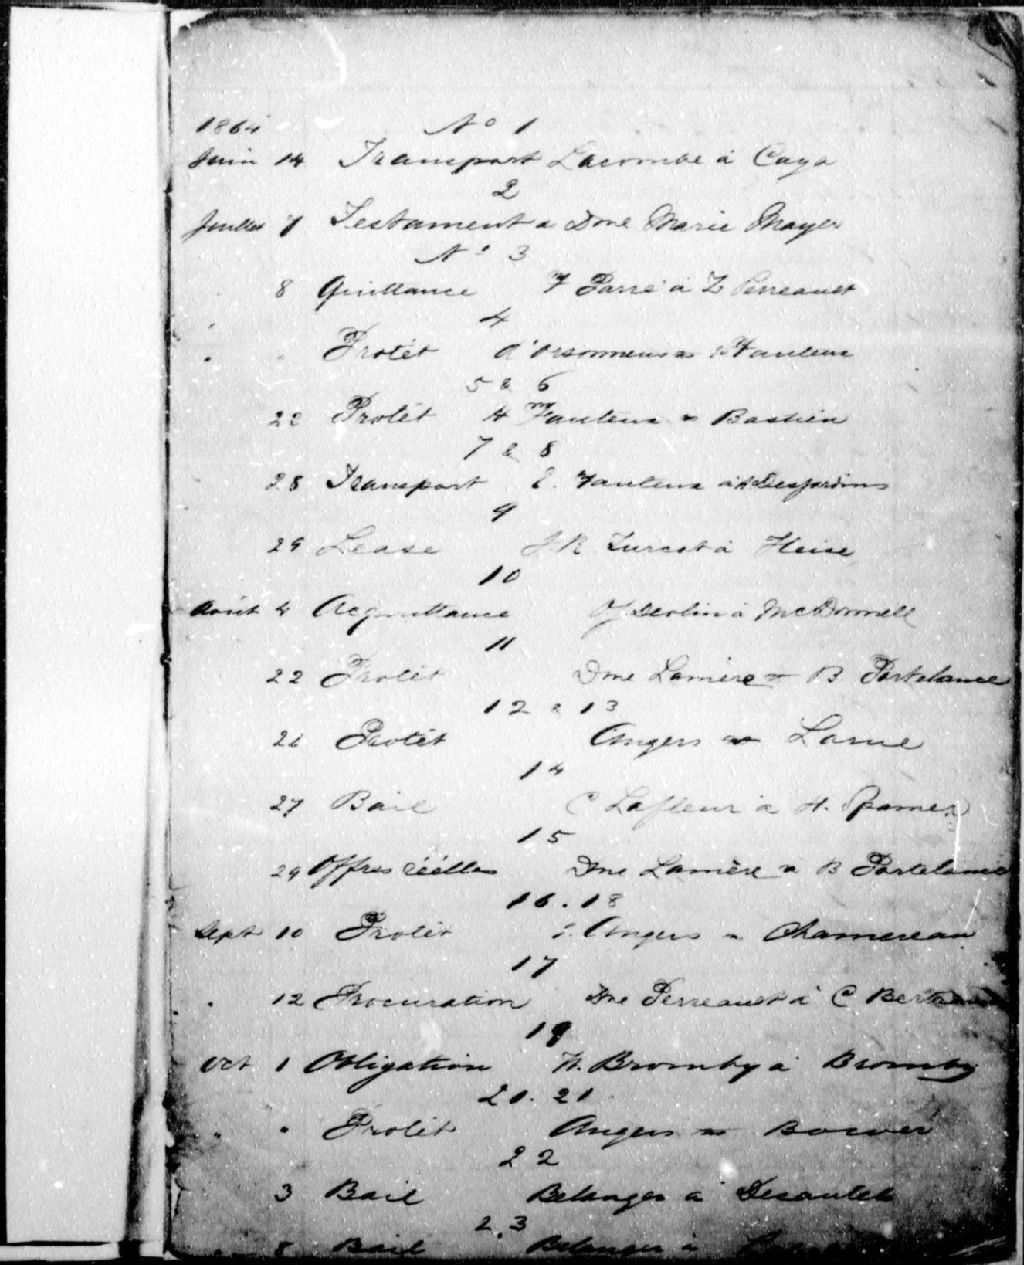 1864 No 1
Juin 14 Transport Lacombe à Caya
2
Juillet 7 Testament de Dme Marie Mayer
No 3
8 Quittance F Parré à Z Perreault
4
" " Protêt d'Orsonnens vs Fauteux
5 & 6
22 Protêt H Fauteux vs Bastien
7 & 8
28 Transport E. Fauteux à Desjardins
9
29 Lease J. R. Turcot à Heise
10
Août 4 Acquittance Devlin à McDonnell
11
22 Protêt Dme Lamère vs B Portelance
12 & 13
26 Protêt Angers vs Larue
14
27 Bail C Lafleur à H.
15
29 Offres réelles Dme Lamère vs B Portelance
16. 18
Sept 10 Protêt Angers vs Chamereau
17
" 12 Procuration Dme Perreault à C
19
Oct 1 Obligation W. Bromby à Bromby
20. 21
" " Protêt Angers vs
22
3 Bail Belanger à Desautels
23
" 8 Bail Belanger à